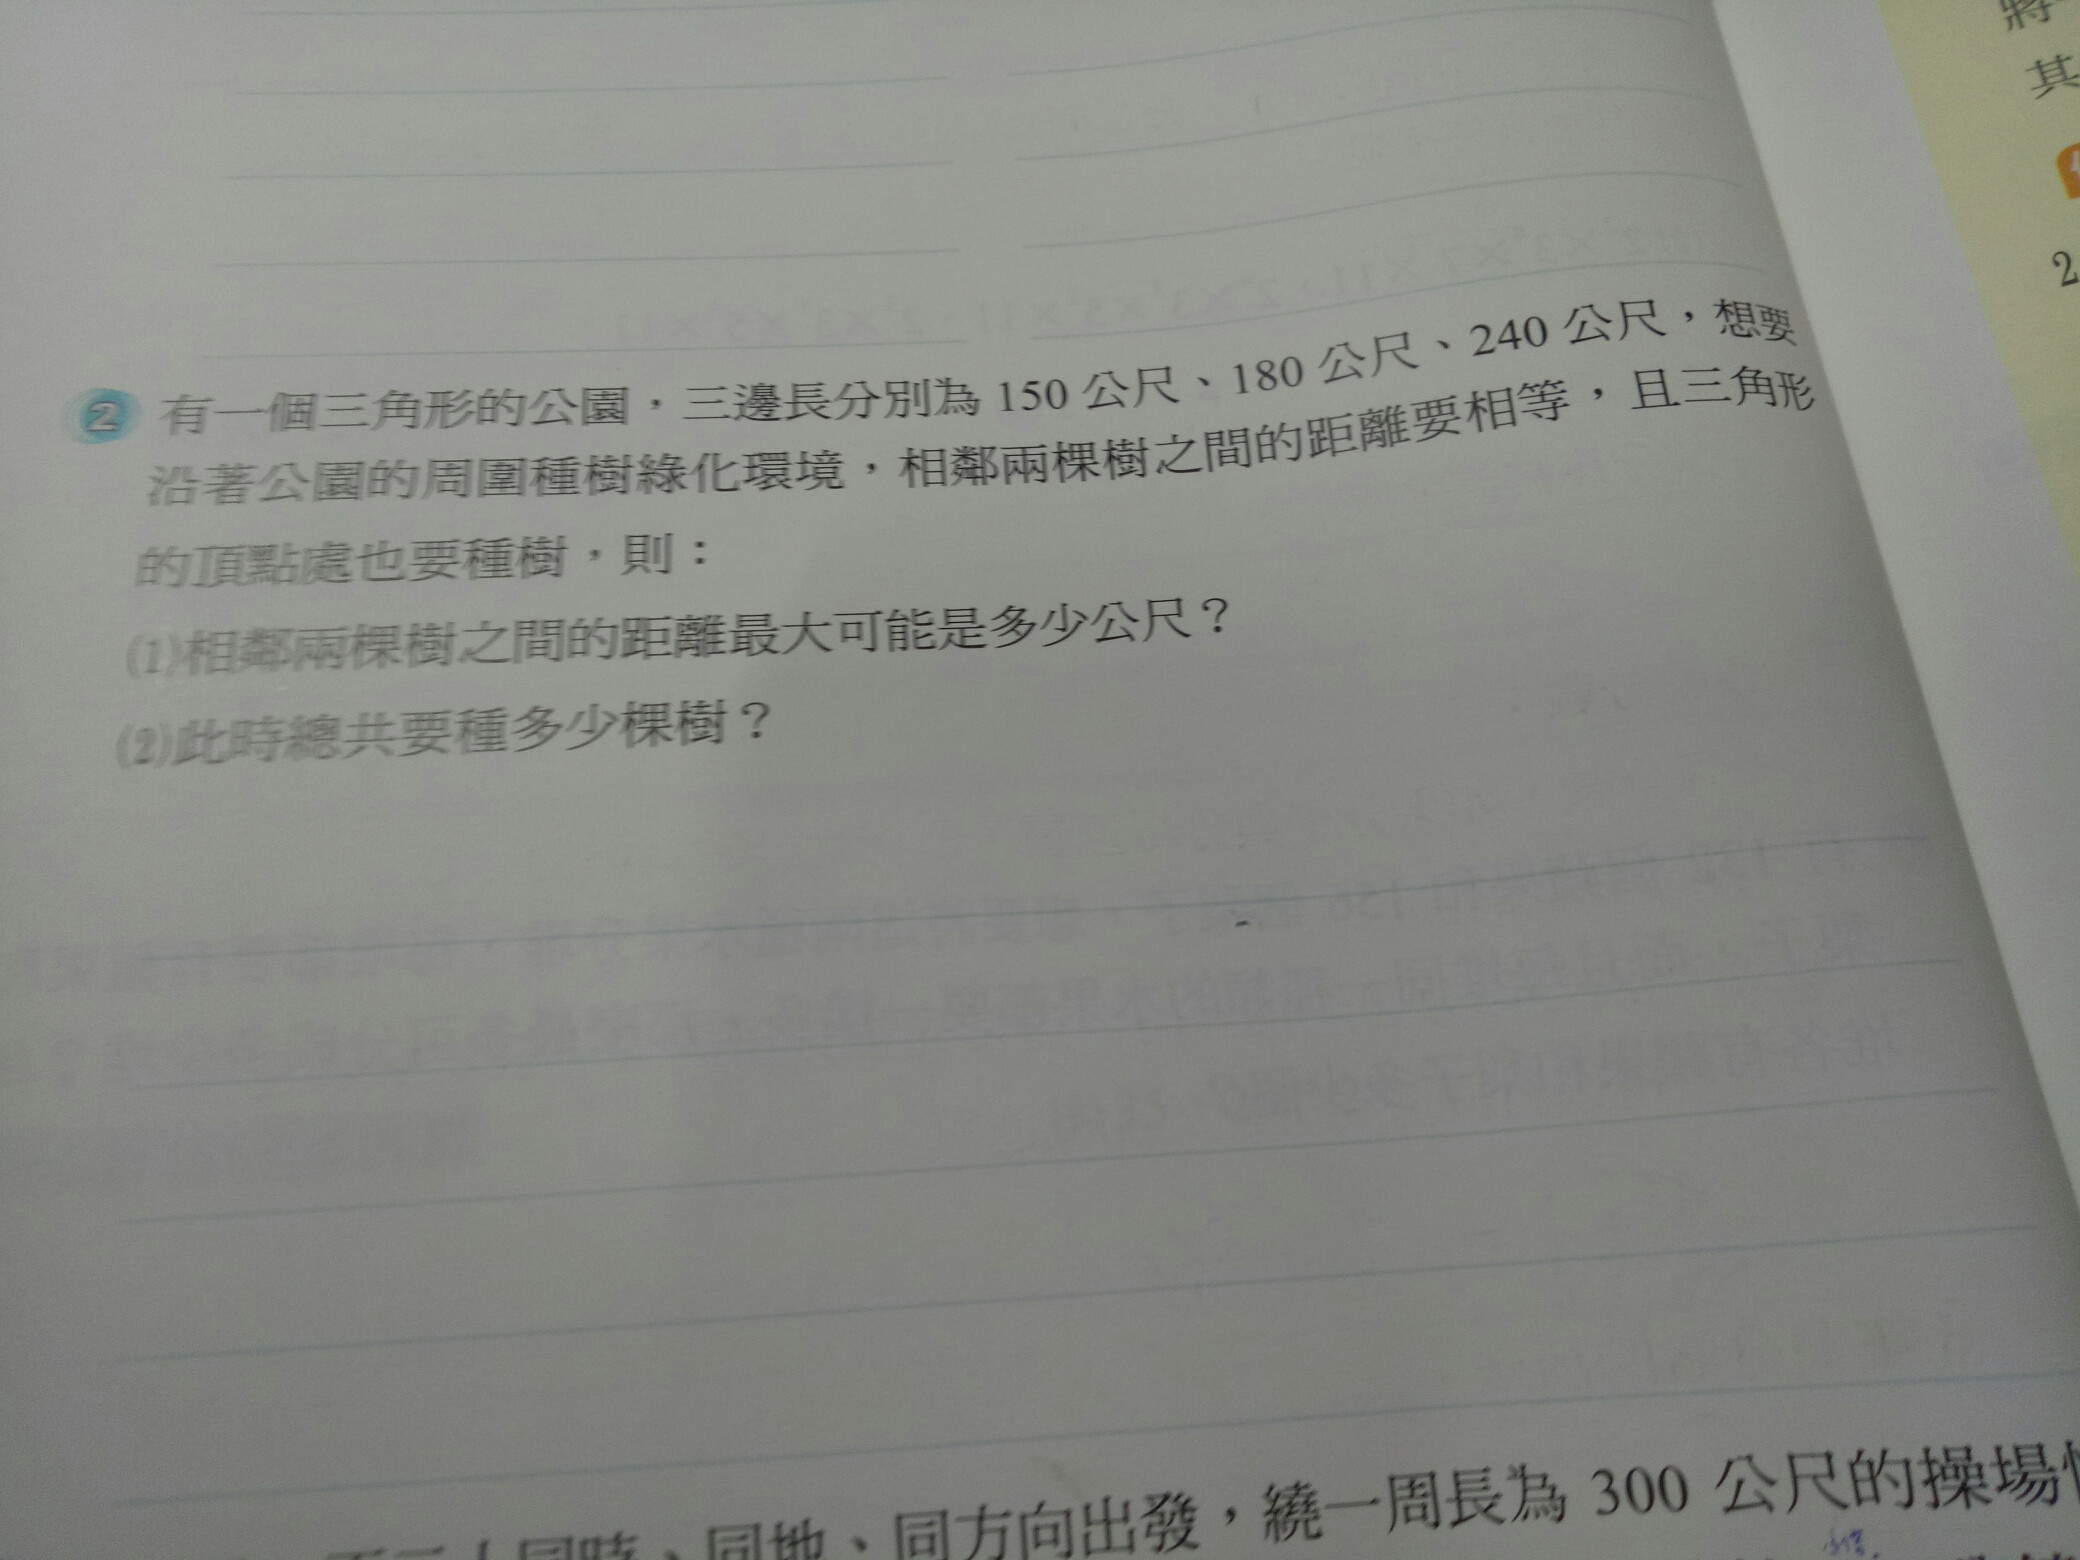 將
其
2
2 有一個三角形的公園，三邊長分別為 150 公尺、180 公尺、240 公尺，想要
沿著公園的周圍種樹綠化環境，相鄰兩棵樹之間的距離要相等，且三角形
的頂點處也要種樹，則：
(1)相鄰兩棵樹之間的距離最大可能是多少公尺？
(2)此時總共要種多少棵樹？
同時、同地、同方向出發，繞一周長為 300 公尺的操場